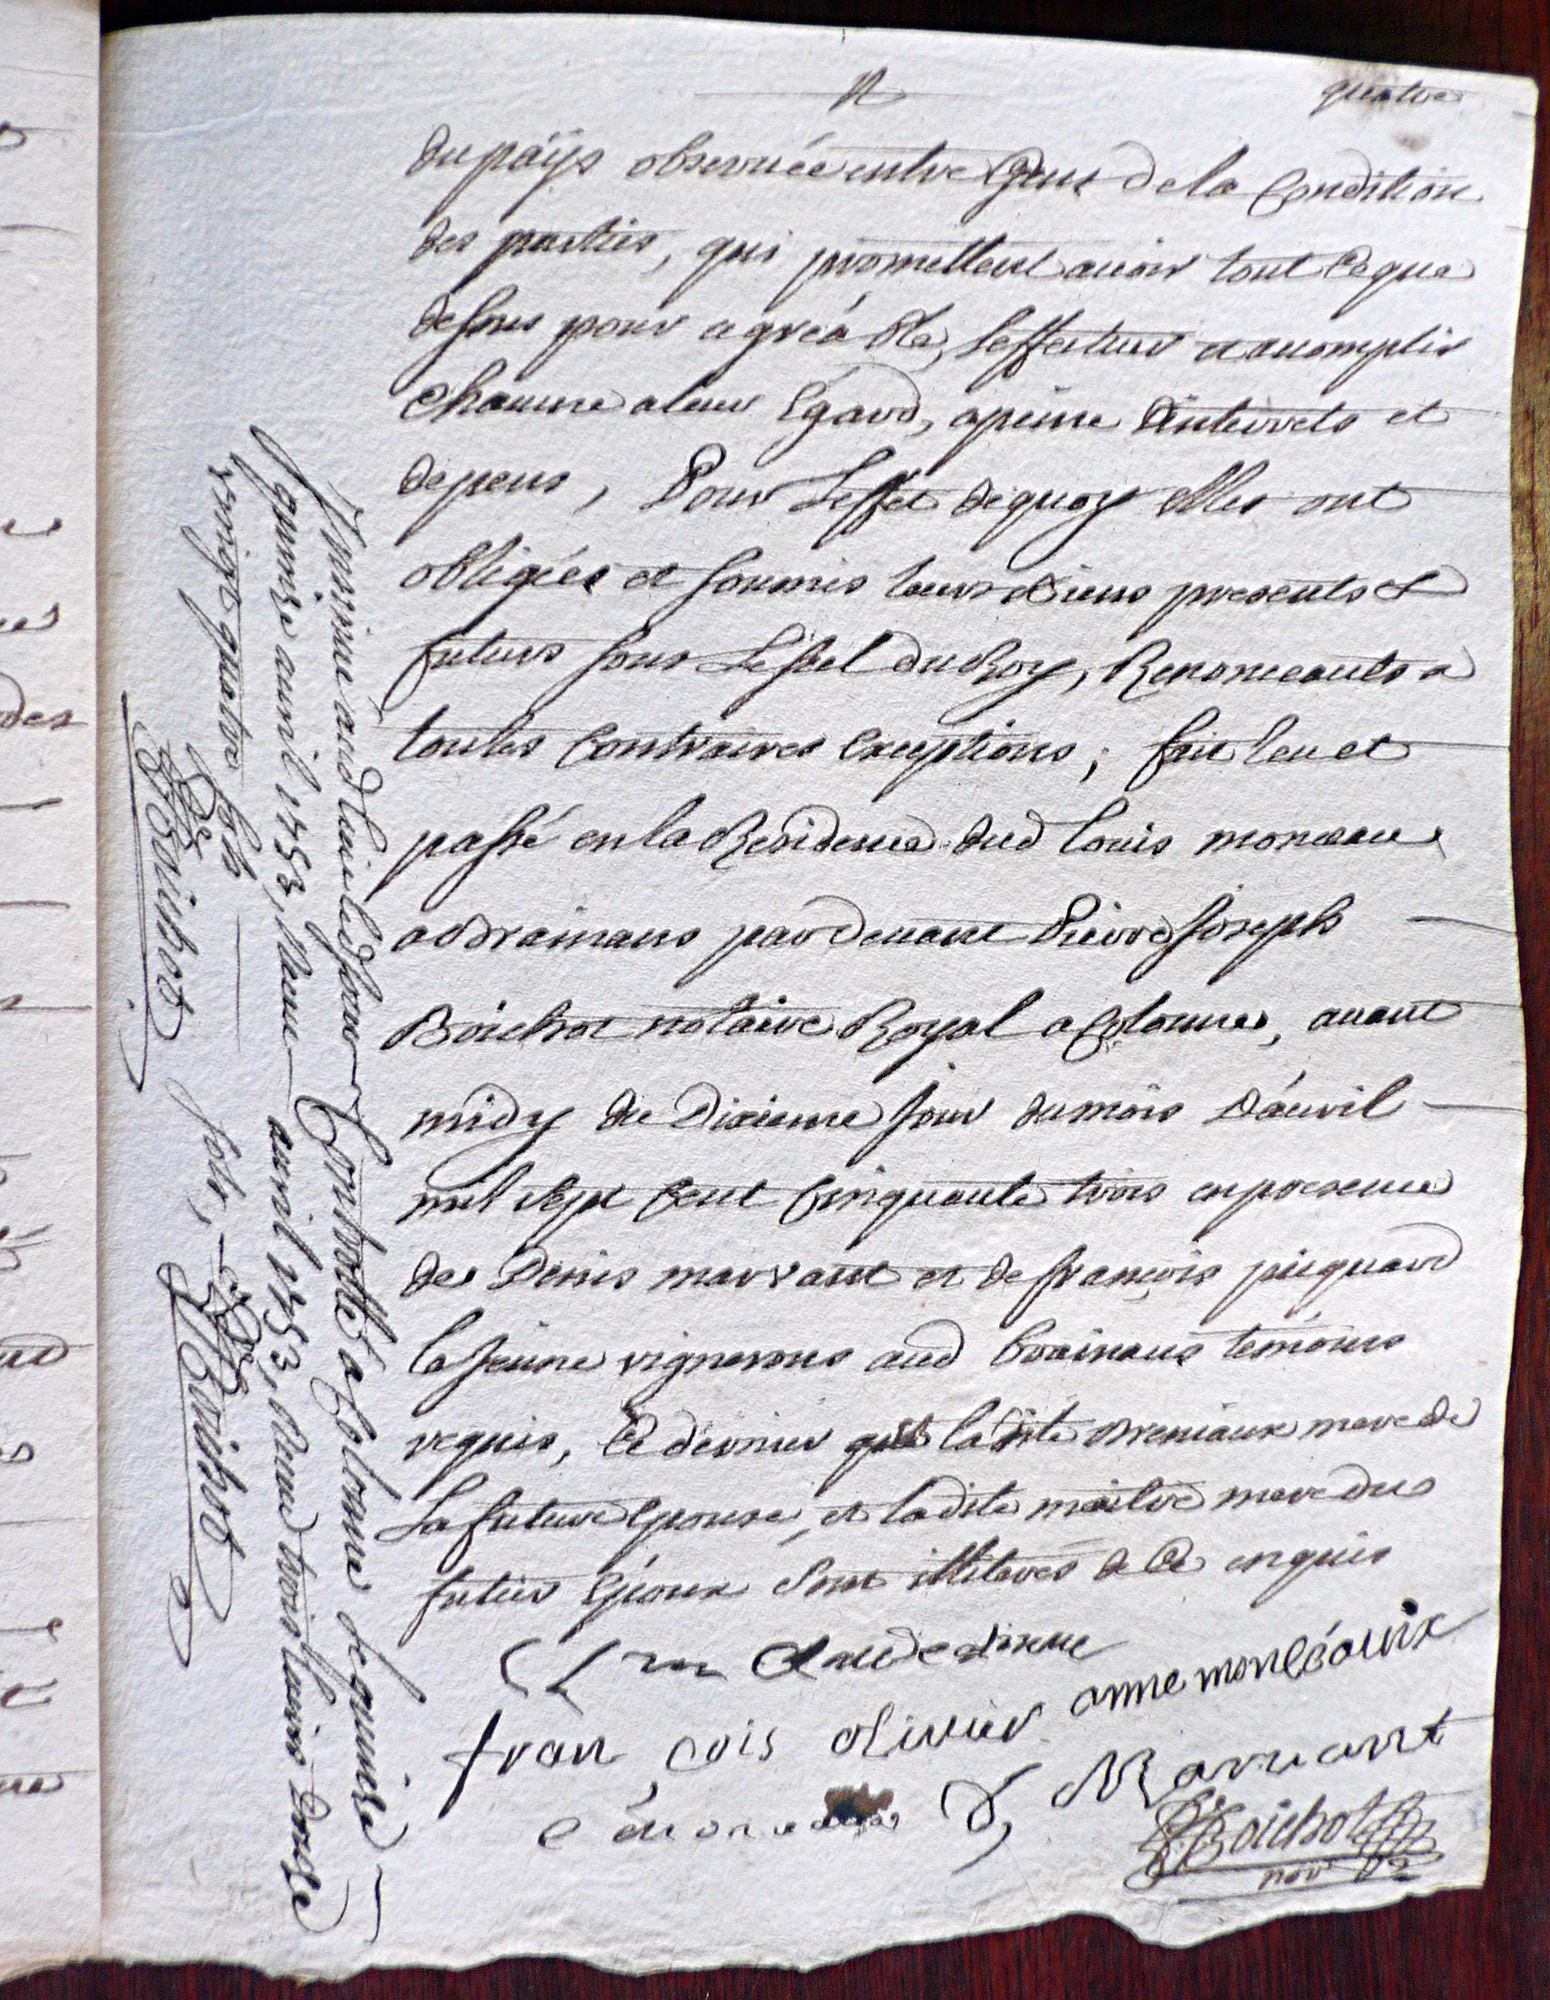 quatre
du païjs observée entre Gens de la Condition
des parties, qui promettent avoir tout Ce que
dessus pour agréable, Leffectuer et accomplir
Chacune a leur Egard, a peine d'interrets et
depens, Pour L'effet de quoy Elles ont
obligées et soumis leurs Biens presents et
futurs sous Le sçel du Roy, Renonceants a
toutes Contraires Exceptions ; fait leu et
passé en la Residence dud Louis monceau
a Brainans par devant Pierre Joseph
Boichot notaire Royal a Colonne, avant
midy du Dixieme Jour du mois D'avril
mil sept Cent Cinquante trois en presence
de Denis marvant et de françois picquard
le Jeune vignerons aud brainans temoins
requis, Ce dernier la dite mere de
La future Epouse, et ladite maitre mere du
futur Epoux sont illiteres de Ce enquis
Claude
fran çois olivier anne
D Marvant
Boichot
Controllé a Colonne le quinze
quinze avril 1753, Reçu avril 1753, Reçu trois livres douze
vingt quatre sols
Boichot sols, Boichot